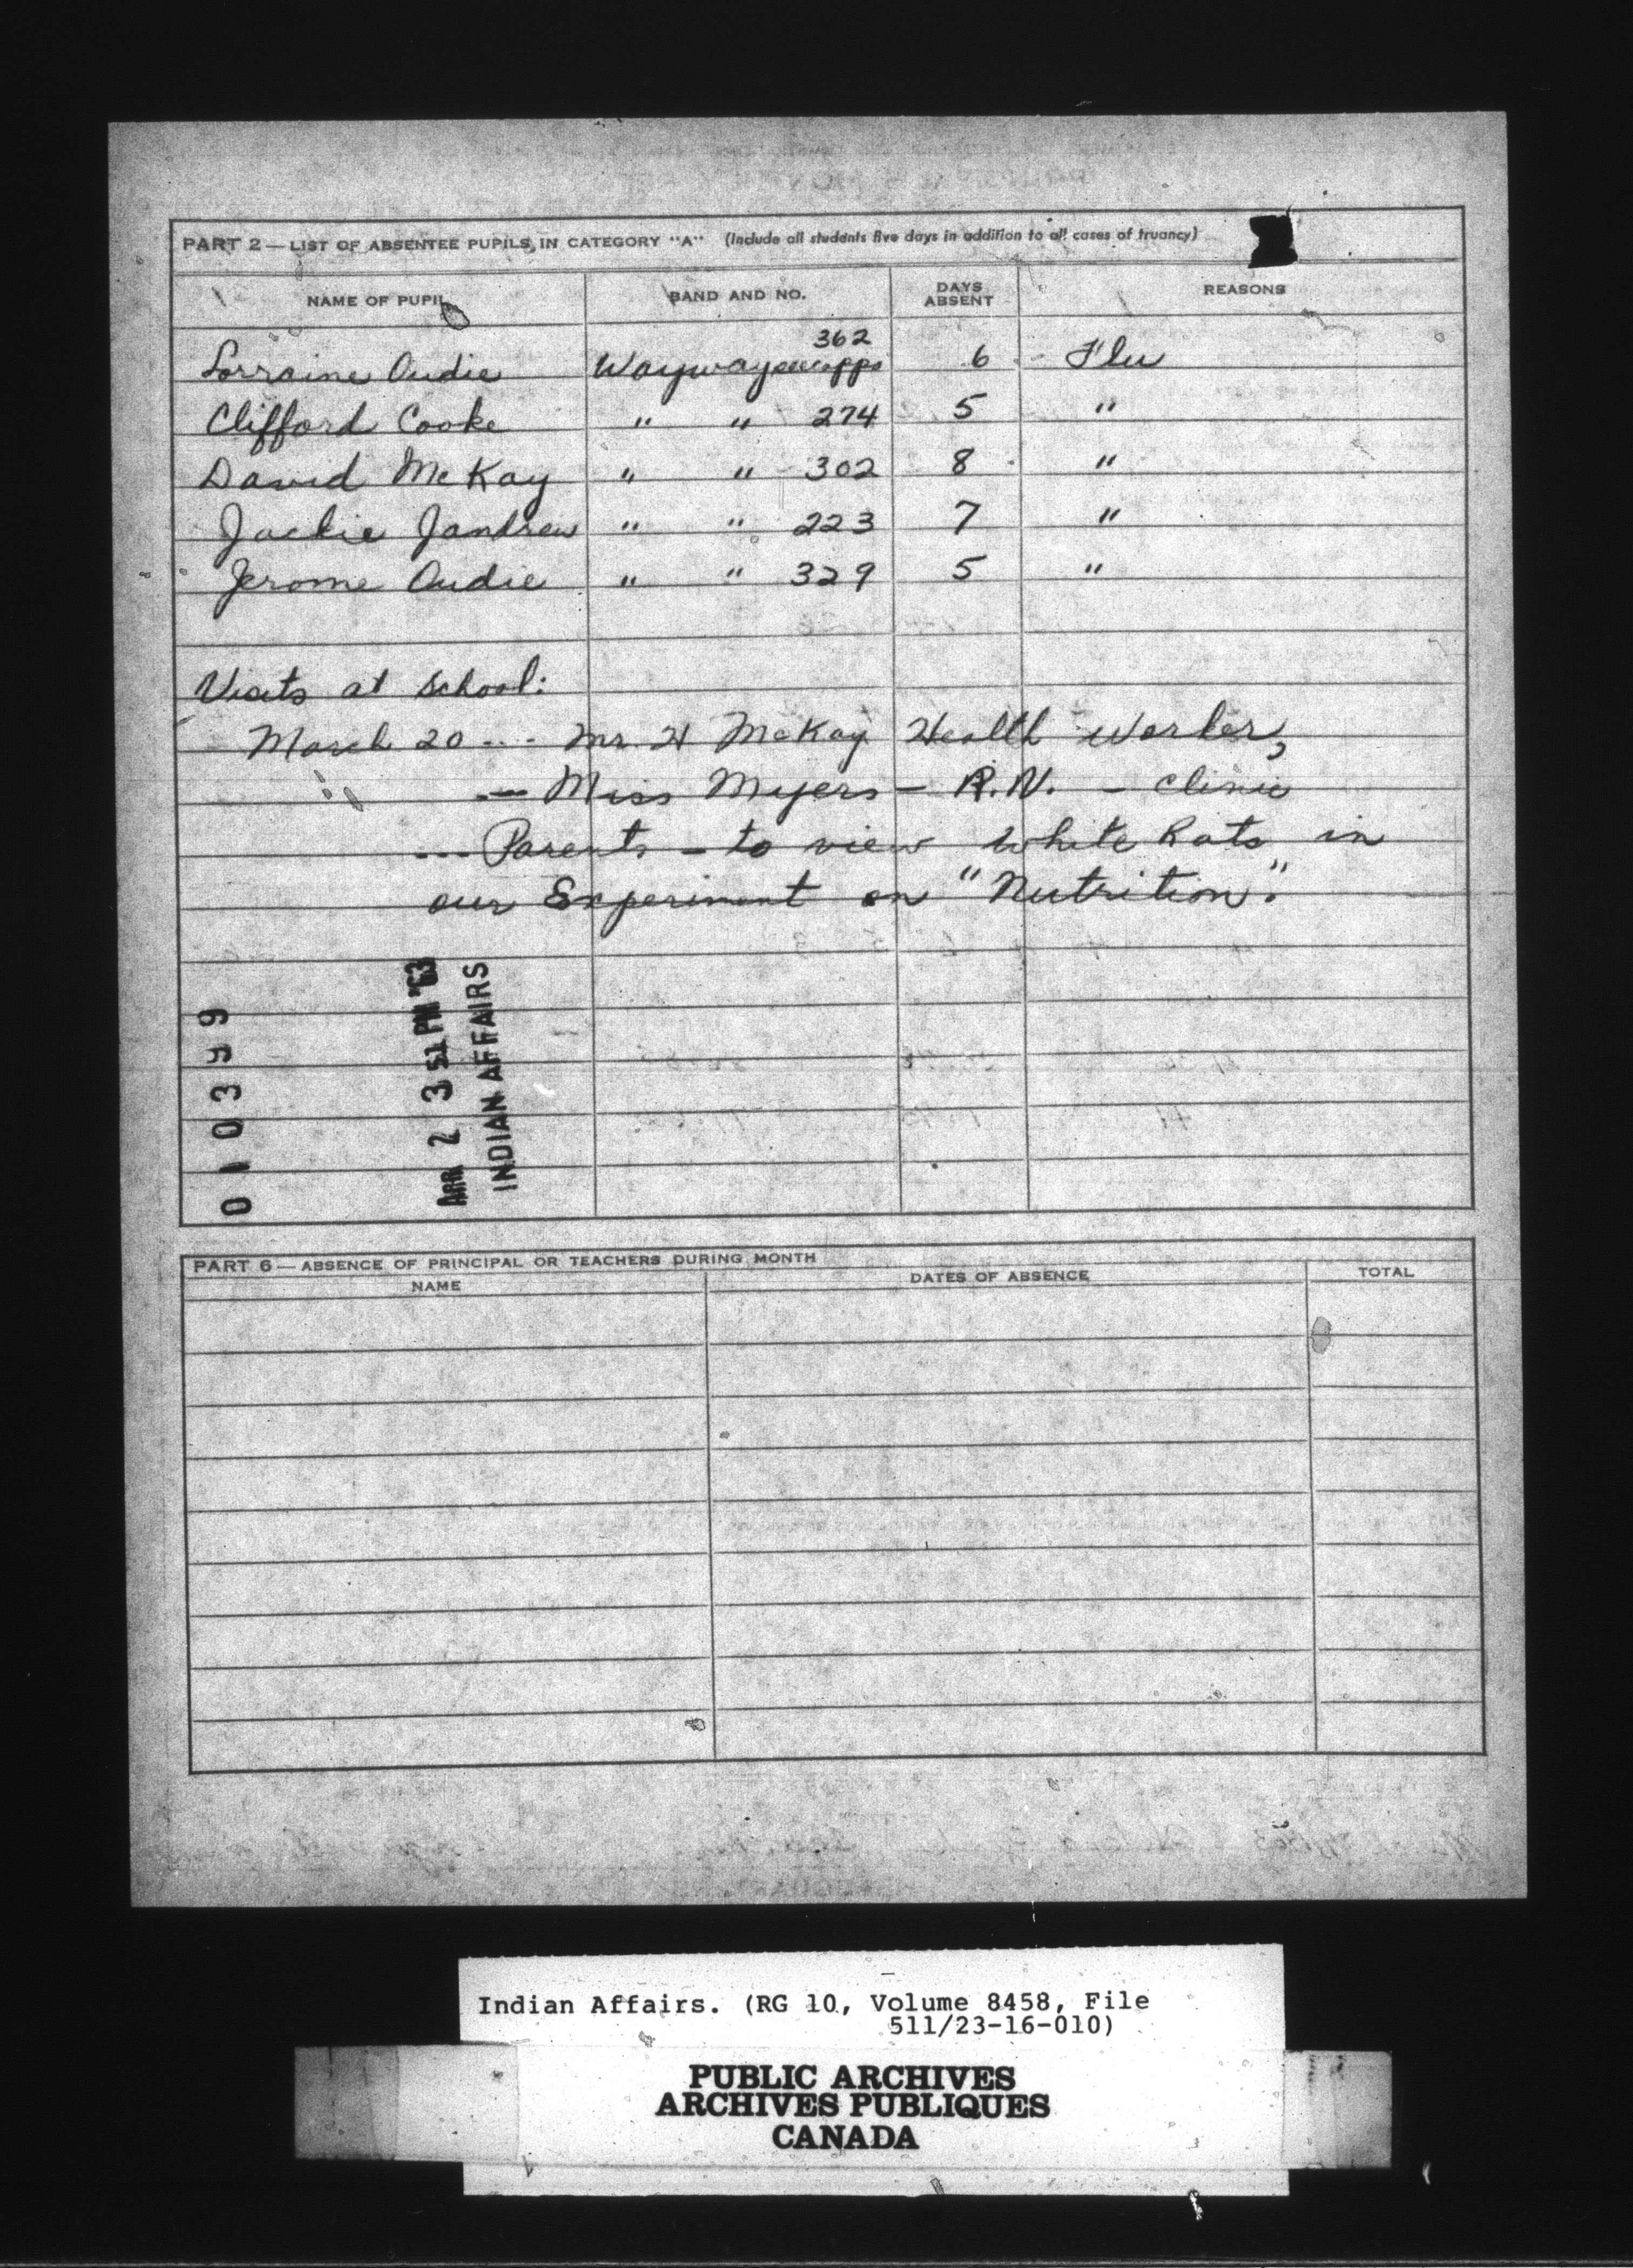 PART 2 — LIST OF ABSENTEE PUPILS IN CATEGORY "A" (Include all students five days in addition to all cases of truancy)
NAME OF PUPIL BAND AND NO. DAYS ABSENT REASONS
362
Lorraine Audie Waywayseecappo 6 - Flu
Clifford Cooke " " 274 5 "
David McKay " " 302 8 "
Jackie Jandrew " " 223 7 "
Jerome Audie " " 329 5 "
Visits at School:
March 20 --- Mr. H McKay Health Worker,
" -- Miss Myers - R.N. - clinic
--- Parents - to view White Rats in
our Experiment on "Nutrition".
010399
APR 2 3 51 PM '63
INDIAN AFFAIRS
PART 6 — ABSENCE OF PRINCIPAL OR TEACHERS DURING MONTH
NAME DATES OF ABSENCE TOTAL
Indian Affairs. (RG 10, Volume 8458, File
511/23-16-010)
PUBLIC ARCHIVES
ARCHIVES PUBLIQUES
CANADA